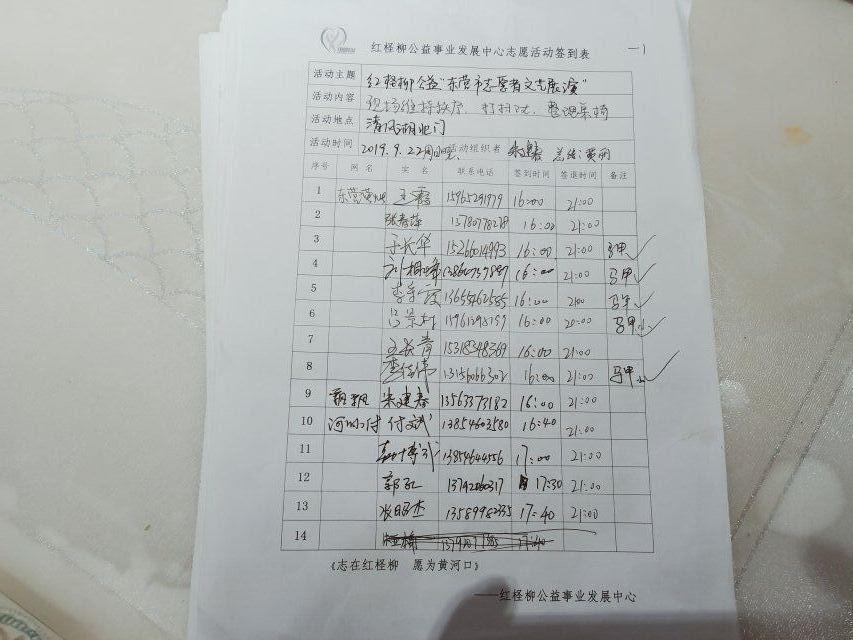 红柽柳公益事业发展中心志愿活动签到表 一1
活动主题 红柽柳公益"东营市志愿者文艺展演"
活动内容 现场维持秩序、打扫卫、整理桌椅
活动地点 清风湖北门
活动时间 2019.9.22 活动组织者 总结:黄丽
序号 网名 实名 联系电话 签到时间 签退时间 备注
1 王霞 15965291979 16:00 21:00
2 张春萍 16:00 21:00
3 于长华 15266014993 16:00 21:00 马甲 ✓
4 刘相峰 16:00 21:00 马甲 ✓
5 李秀霞 13655462585 16:00 马甲 ✓
6 吕景村 16:00 20:00 马甲 ✓
7 王长青 15318348369 16:00 21:00
8 李伟 13156066302 16:00 21:00 马甲 ✓
9 朱建春 13563373182 16:00 21:00
10 付文斌 13854603580 16:40 21:00
11 13854644556 17:00 21:00
12 郭 17:30 21:00
13 杰 17:40 21:00
14 17:40
《志在红柽柳 愿为黄河口》
——红柽柳公益事业发展中心